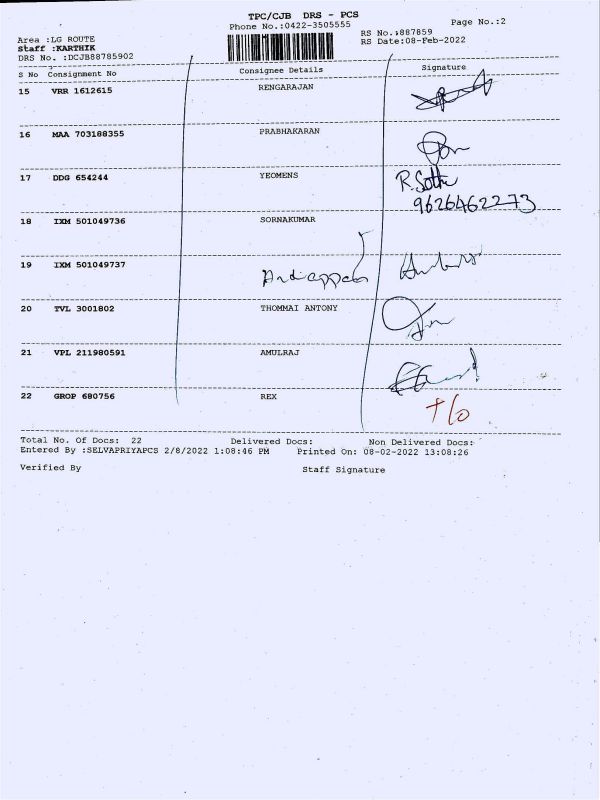 TPC/CJB DRS - PCS
Phone No.:0422-3505555
Page No.:2
Area :LG ROUTE
RS No.:887859
Staff :KARTHIK
RS Date:08-Feb-2022
DRS No. :DCJB88785902
S No Consignment No Consignee Details Signature
15 VRR 1612615 RENGARAJAN
16 MAA 703188355 PRABHAKARAN
17 DDG 654244 YEOMENS
9626462273
18 IXM 501049736 SORNAKUMAR
19 IXM 501049737
20 TVL 3001802 THOMMAI ANTONY
21 VPL 211980591 AMULRAJ
22 GROP 680756 REX
T/O
Total No. Of Docs: 22 Delivered Docs: Non Delivered Docs:
Entered By :SELVAPRIYAPCS 2/8/2022 1:08:46 PM Printed On: 08-02-2022 13:08:26
Verified By Staff Signature